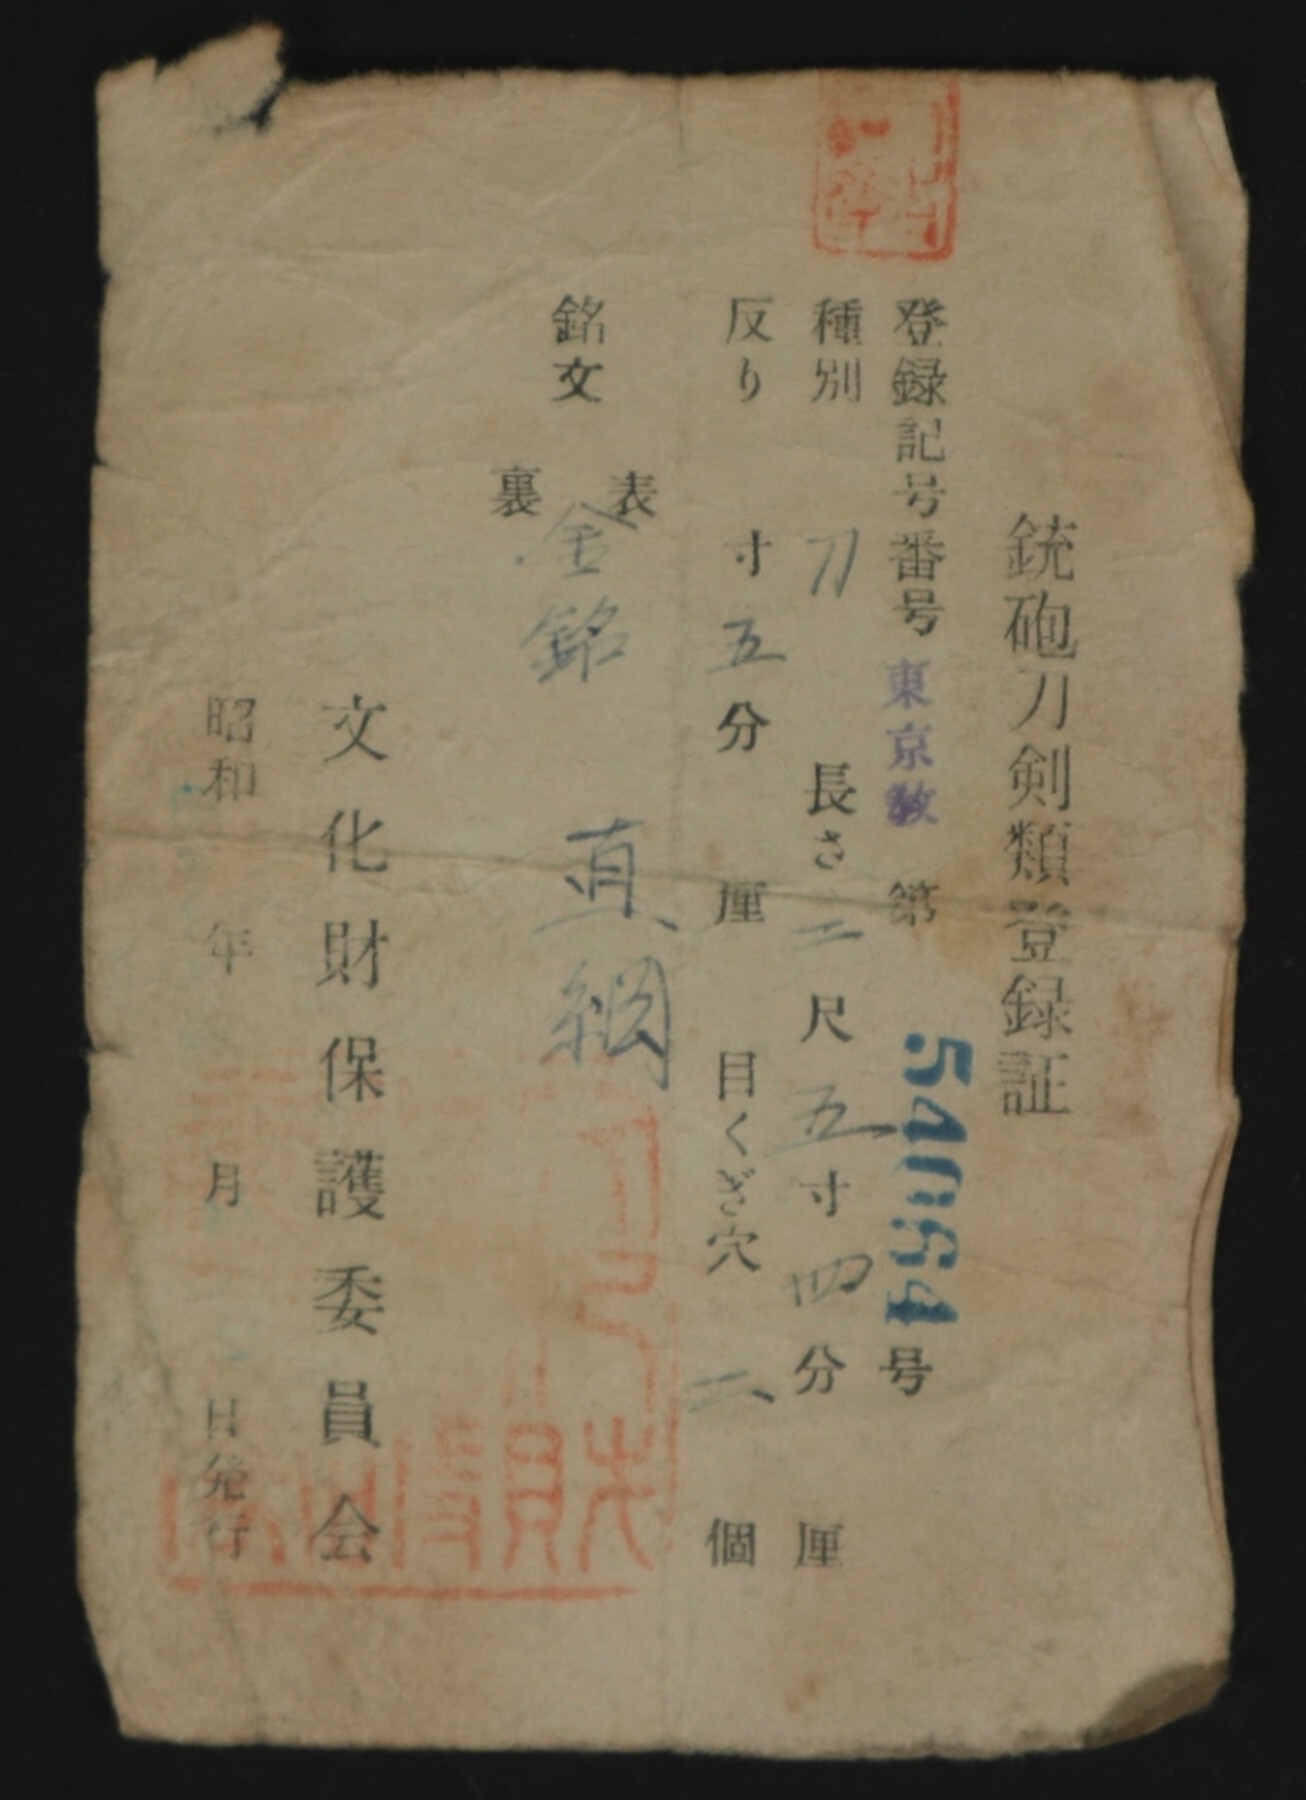 銃砲刀剣類登録証
登録記号番号 東京教 第 54054号
種別 刀 長さ 二尺 五寸 四分 厘
反り 寸 五分 厘 目くぎ穴 二 個
銘文
表
裏
金銘 直綱
文化財保護委員会
昭和 年 月 日発行